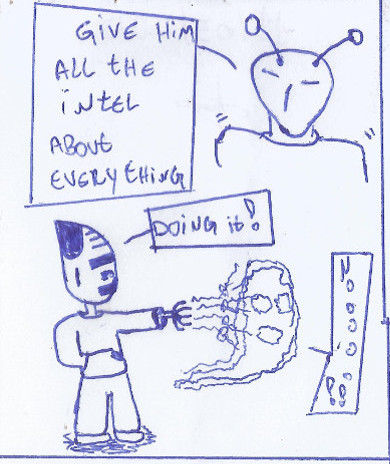 GIVE HIM
ALL tHE
iNtEL
ABOUt
EVERYtHiNG
DOiNG it!
Noooo!!!